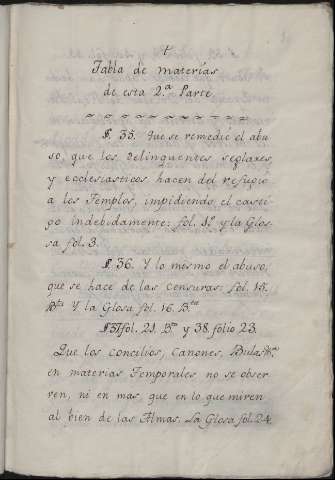 †
Tabla de materias
de esta 2.ª Parte.
§. 35. Que se remedie el abu
so, que los delinquentes seglares,
y ecclesiasticos hacen del refugio
a los Templos, impidiendo el casti
go indebidamente: fol. 1º y la Glos-
sa fol. 3.
§. 36. Y lo mismo el abuso,
que se hace de las censuras: fol. 15.
B.ta Y la Glosa fol. 16. B.ta
§ 37 fol. 21. B.ta y 38 folio 23.
Que los concilios, canones, Bulas &.ª
en materias Temporales no se obser
ren, ni en mas, que en lo que miren
al bien de las Almas. La Glosa fol. 24.